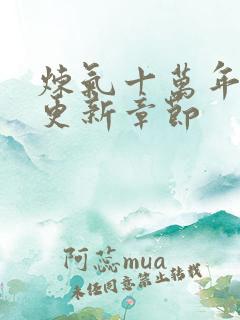 煉氣十萬年
更新章節
阿蕊mua
未经同意禁止转载